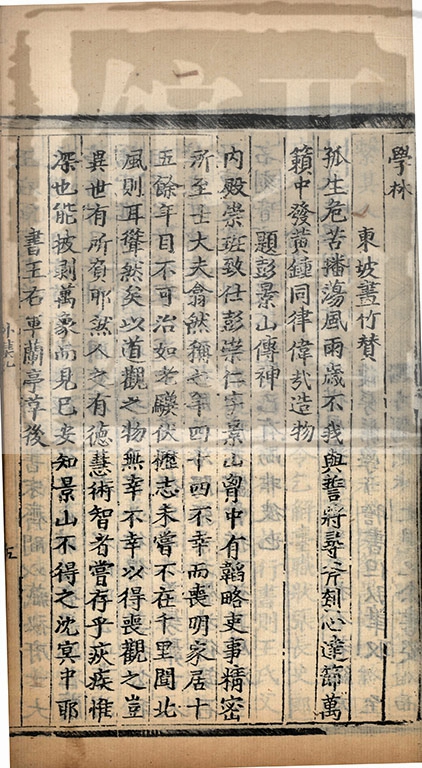 學林
東坡畫竹贊
孤生危苦播蕩風雨歲不我與誓將尋斧刳心達節萬
籟中發黃鍾同律偉哉造物
題彭景山傳神
內殿崇班致仕彭崇仁字景山胷中有韜略吏事精密
所至士大夫翕然稱之年四十四不幸而喪明家居十
五餘年目不可治如老驥伏櫪志未嘗不在千里聞北
風則耳聳然矣以道觀之物無幸不幸以得喪觀之豈
異世有所負耶然人之有德慧術智者嘗存乎疢疾惟
深也能披剥萬象而見已安知景山不得之沈冥中耶
書王右軍蘭亭草後
五